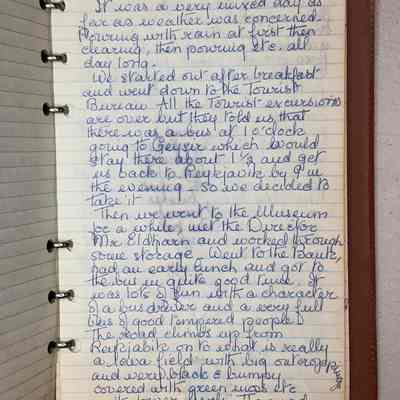 It was a very mixed day as
far as weather was concerned.
Pouring with rain at first then
clearing, then pouring etc. all
day long.
We started out after breakfast
and went down to the Tourist
Bureau All the Tourist excursions
are over but they told us that
there was a bus at 1 o'clock
going to Geysir which would
stay there about 1½ and get
us back to Reykjavik by 9 in
the evening – so we decided to
take it
Then we went to the Museum
for a while, met the Director
Mr Eldharn and worked through
some storage. Went to the Bank,
had an early lunch and got to
the bus in quite good time. It
was lots of fun with a character
of a bus driver and a very full
bus of good tempered people.
The road climbs up from
Reykjavik on to what is really
a lava field with big outcroppings
and very black & bumpy
covered with green moss etc